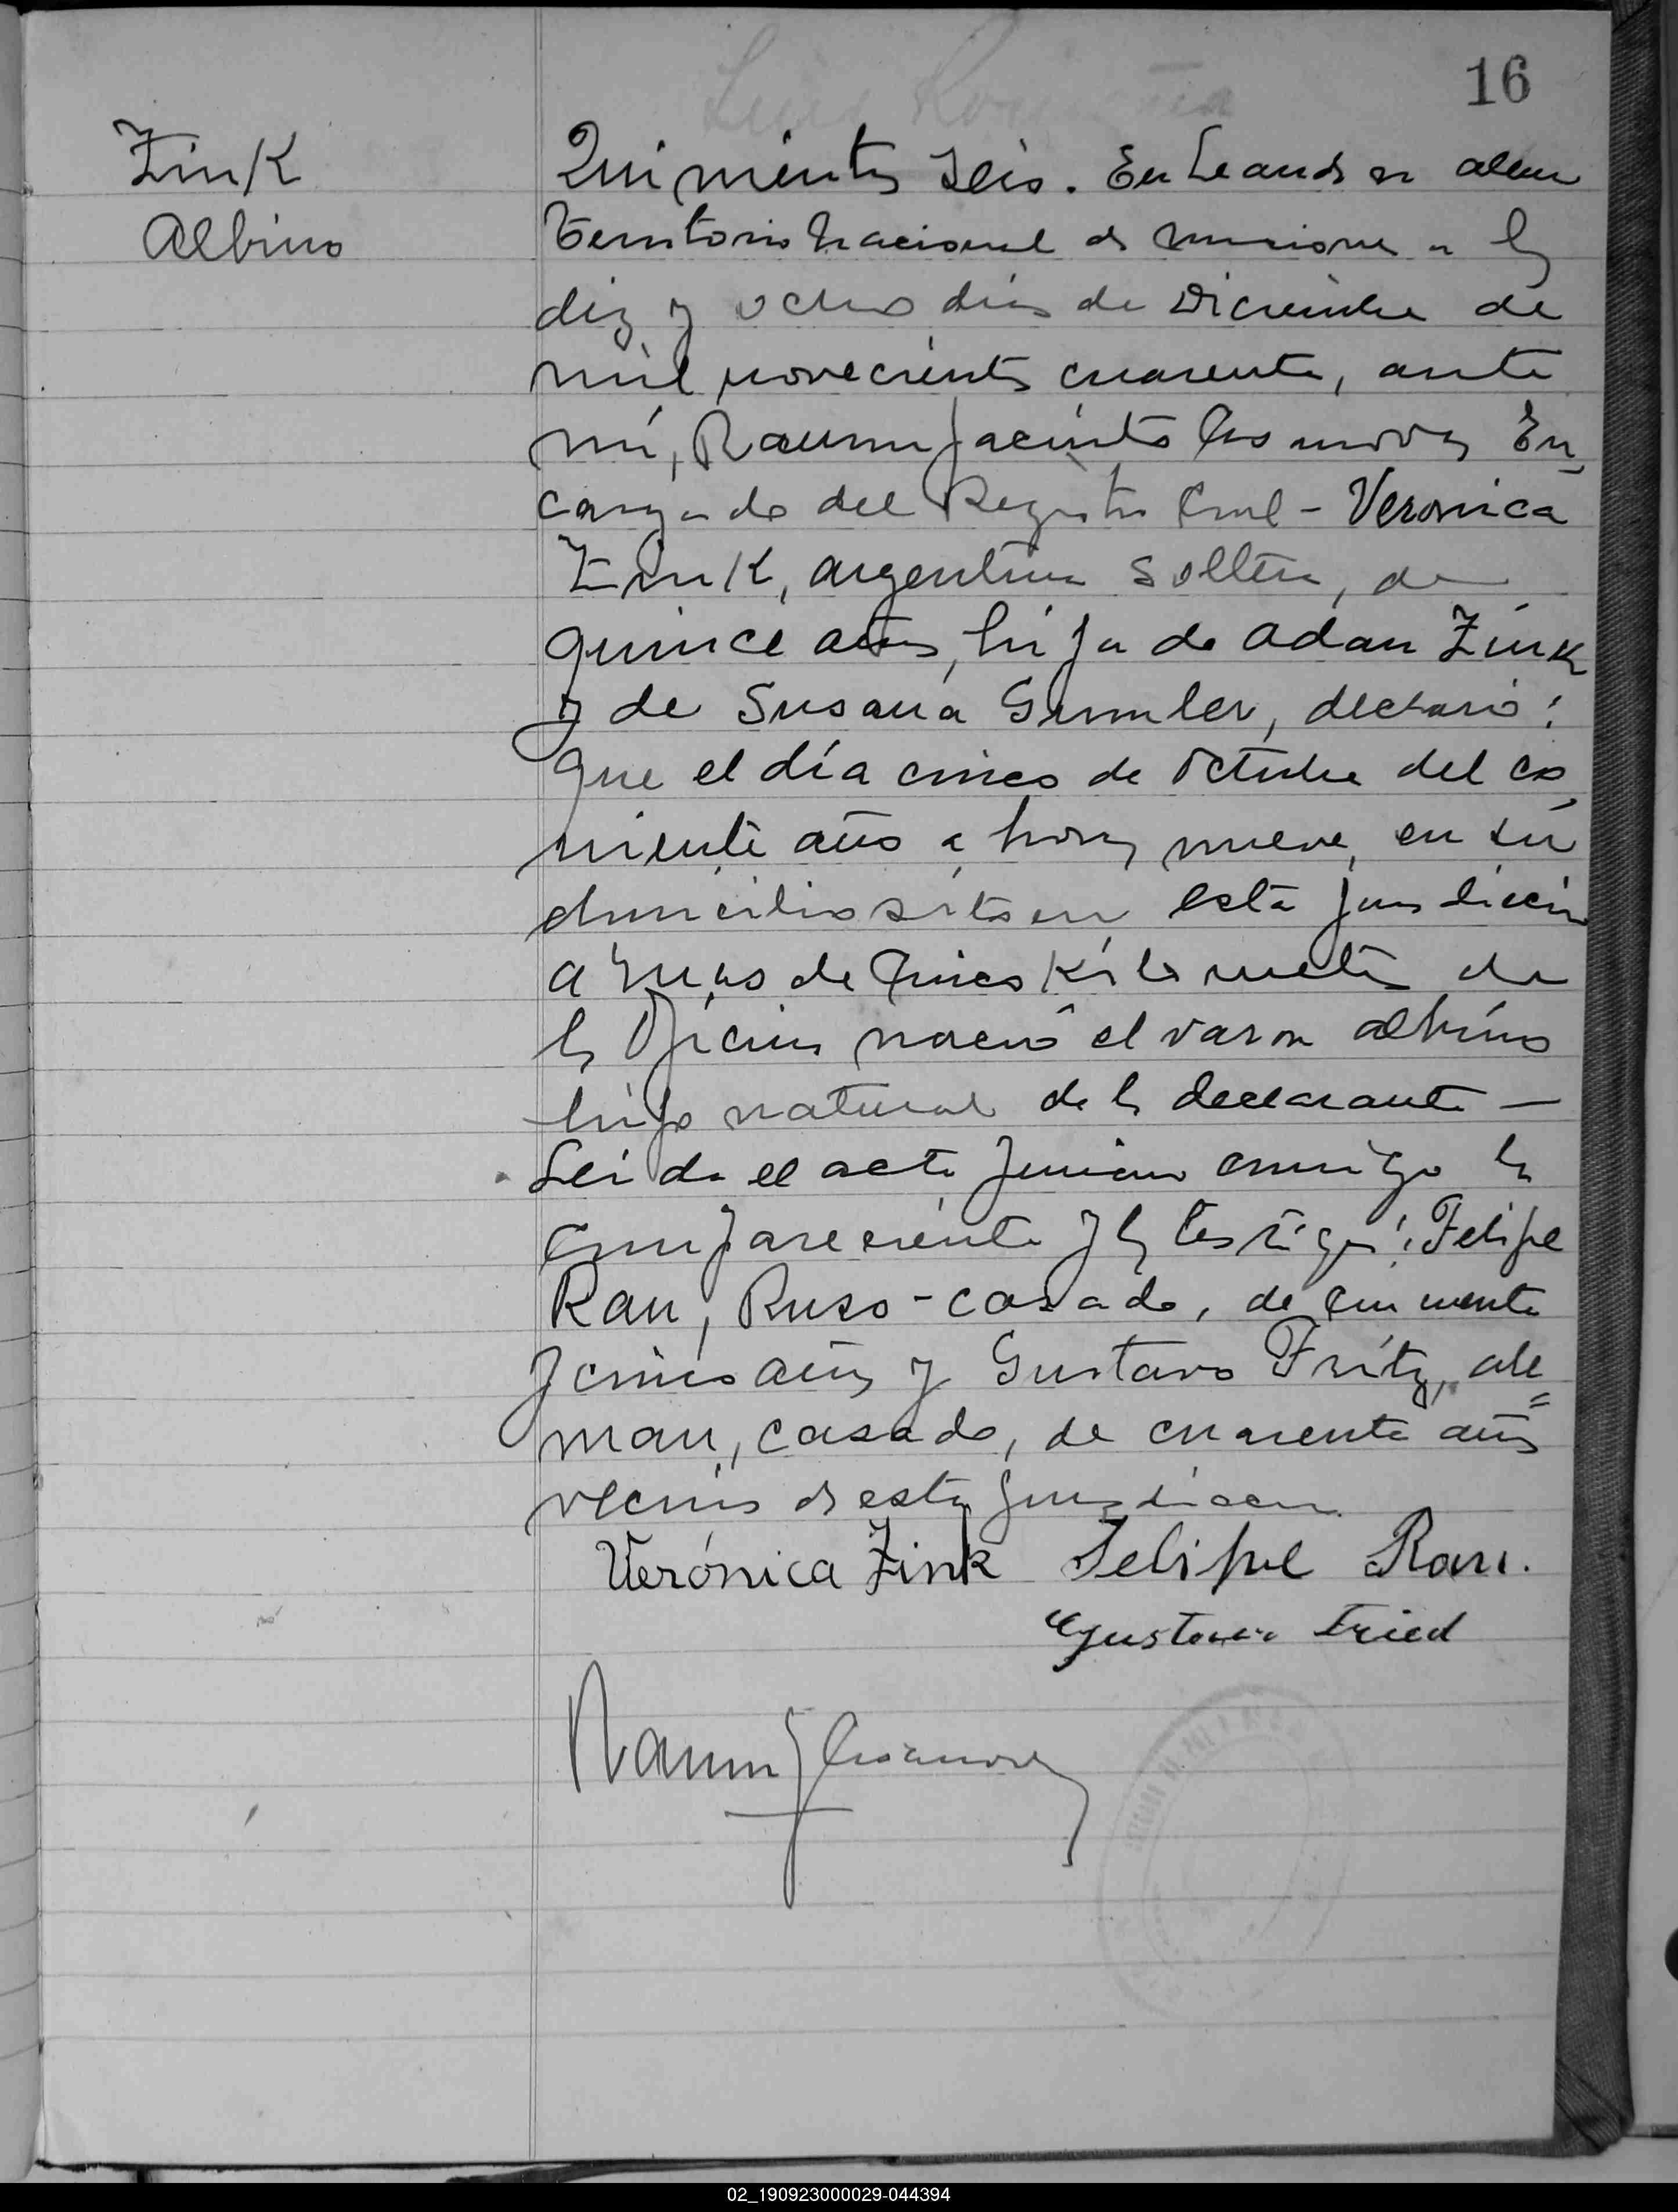 16
Zink
Albino
Quinientos Seis. En Leandro n alem
Territorio Nacional de Misiones a los
diez y ocho dias de Diciembre de
mil novecientos cuarenta, ante
mi, Ramon Jacinto Casanova, En
cargado del Registro Civil - Veronica
Zink, argentina soltera, de
quince años, hija de Adan Zink
y de Susana Grumler, declaró:
Que el día cinco de octubre del co
rriente año a horas nueve, en su
domicilio sito en esta jurisdiccion
a mas de cinco kilometros de
la Oficina nació el varon Albino
hijo natural de la declarante —
Leida el acta firman conmigo la
compareciente y los testigos: Felipe
Rau, Ruso - casado, de cincuenta
y cinco años y Gustavo Fritz, ale=
man, casado, de cuarenta años
vecinos de esta jurisdiccion.
Verónica Zink Felipe Rau.
Gustavo Fried
Ramon J Casanova
02_190923000029-044394